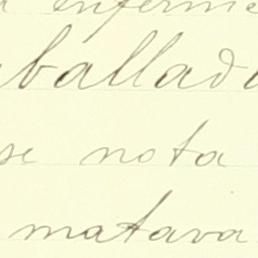 enferme
ballad
se nota
matava